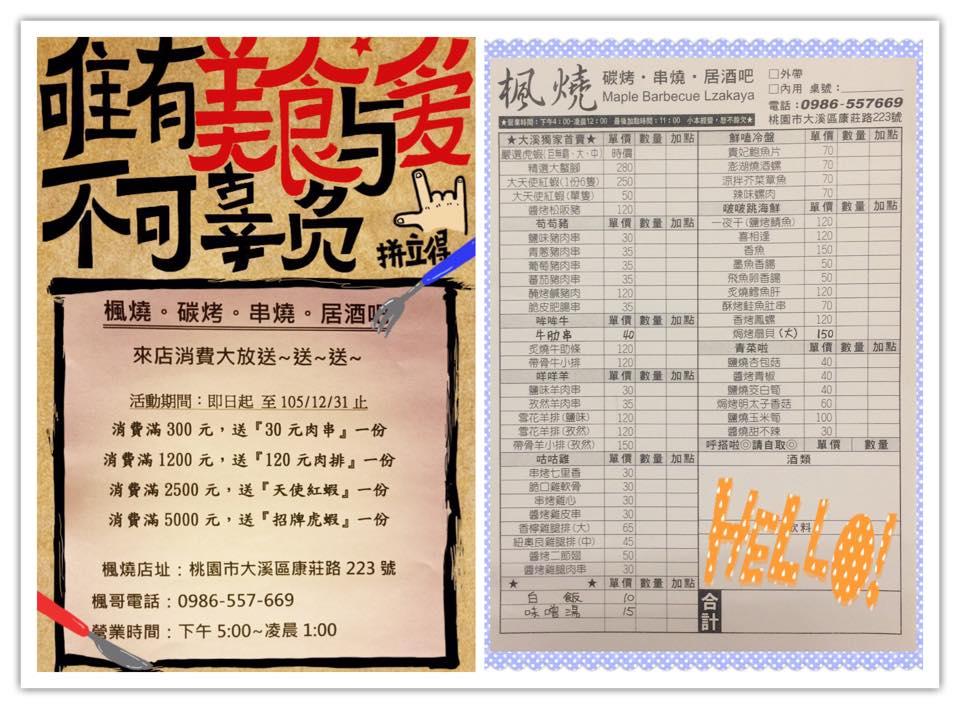 唯有美食与爱
不可辜负
拼立得
楓燒。碳烤。串燒。居酒吧
來店消費大放送~送~送~
活動期間：即日起 至 105/12/31 止
消費滿 300 元，送『30 元肉串』一份
消費滿 1200 元，送『120 元肉排』一份
消費滿 2500 元，送『天使紅蝦』一份
消費滿 5000 元，送『招牌虎蝦』一份
楓燒店址：桃園市大溪區康莊路 223 號
楓哥電話：0986-557-669
營業時間：下午 5:00~凌晨 1:00
楓燒 碳烤・串燒・居酒吧
Maple Barbecue Lzakaya
□外帶
□內用 桌號：
電話：0986-557669
桃園市大溪區康莊路223號
★營業時間：下午4：00-凌晨12：00 最後加點時間：11：00 小本經營，恕不賒欠★
★大溪獨家首賣★ 單價 數量 加點
嚴選虎蝦(巨無霸、大、中) 時價
精選大螯腳 280
大天使紅蝦(1份6隻) 250
大天使紅蝦(單隻) 50
醬烤松阪豬 120
苟苟豬 單價 數量 加點
鹽味豬肉串 30
青蔥豬肉串 35
葡萄豬肉串 35
蕃茄豬肉串 35
醃烤鹹豬肉 120
脆皮肥腸串 35
哞哞牛 單價 數量 加點
牛肋串 40
炙燒牛肋條 120
帶骨牛小排 120
咩咩羊 單價 數量 加點
鹽味羊肉串 30
孜然羊肉串 35
雪花羊排(鹽味) 120
雪花羊排(孜然) 120
帶骨羊小排(孜然) 150
咕咕雞 單價 數量 加點
串烤七里香 30
脆口雞軟骨 30
串烤雞心 30
醬烤雞皮串 30
香檸雞腿排(大) 65
紐奧良雞腿排(中) 45
醬烤二節翅 50
醬烤雞腿肉串 30
★ ★ 單價 數量 加點
白 飯 10
味噌湯 15
鮮嗑冷盤 單價 數量 加點
貴妃鮑魚片 70
澎湖燒酒螺 70
涼拌芥菜章魚 70
辣味螺肉 70
啵啵跳海鮮 單價 數量 加點
一夜干(鹽烤鯖魚) 120
喜相逢 120
香魚 150
墨魚香腸 50
飛魚卵香腸 50
炙燒鱈魚肝 120
酥烤鮭魚肚串 70
香烤鳳螺 120
焗烤扇貝(大) 150
青菜啦 單價 數量 加點
鹽燒杏包菇 40
醬烤青椒 40
鹽燒茭白筍 40
焗烤明太子香菇 60
鹽燒玉米筍 100
醬燒甜不辣 30
呼搭啦◎請自取◎ 單價 數量
酒類
飲料
HELLO!
合計